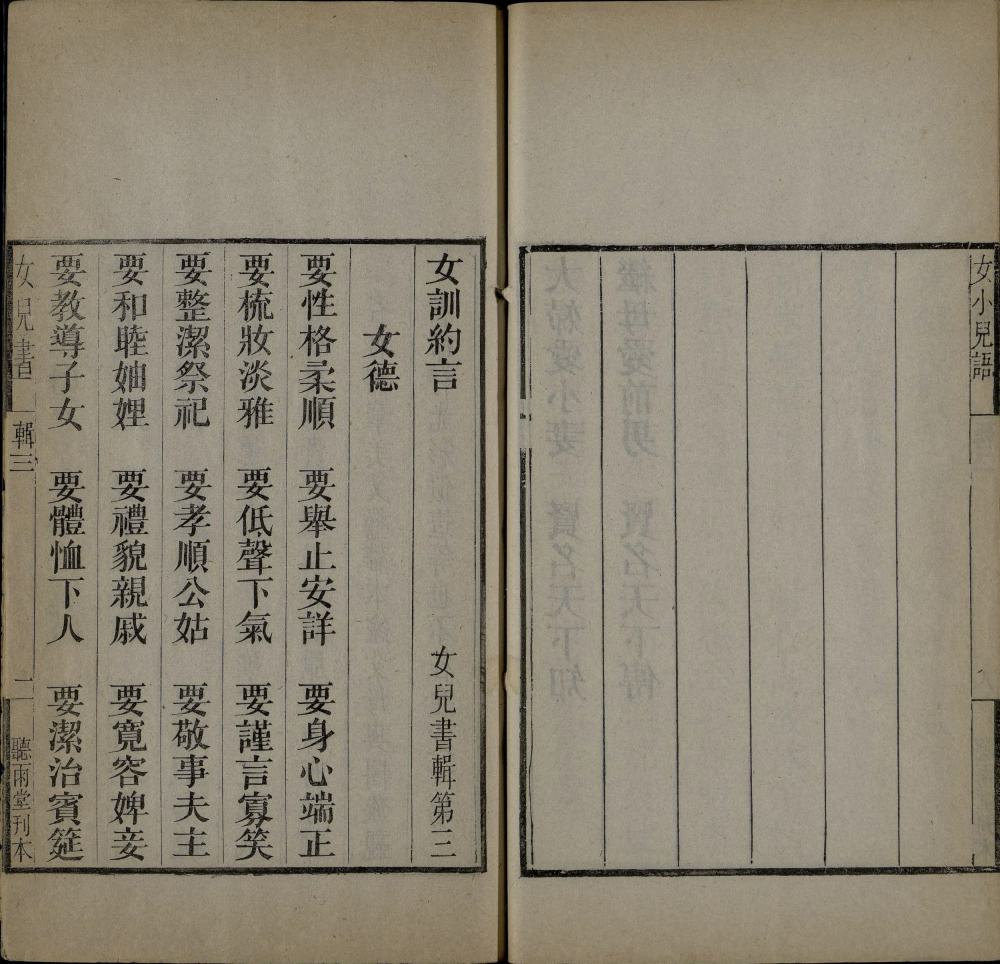 女小兒語
女訓約言 女兒書輯第三
女德
要性格柔順 要舉止安詳 要身心端正
要梳妝淡雅 要低聲下氣 要謹言寡笑
要整潔祭祀 要孝順公姑 要敬事夫主
要和睦妯娌 要禮貌親戚 要寬容婢妾
要教導子女 要體恤下人 要潔治賓筵
女兒書 輯三 二 聽雨堂刊本